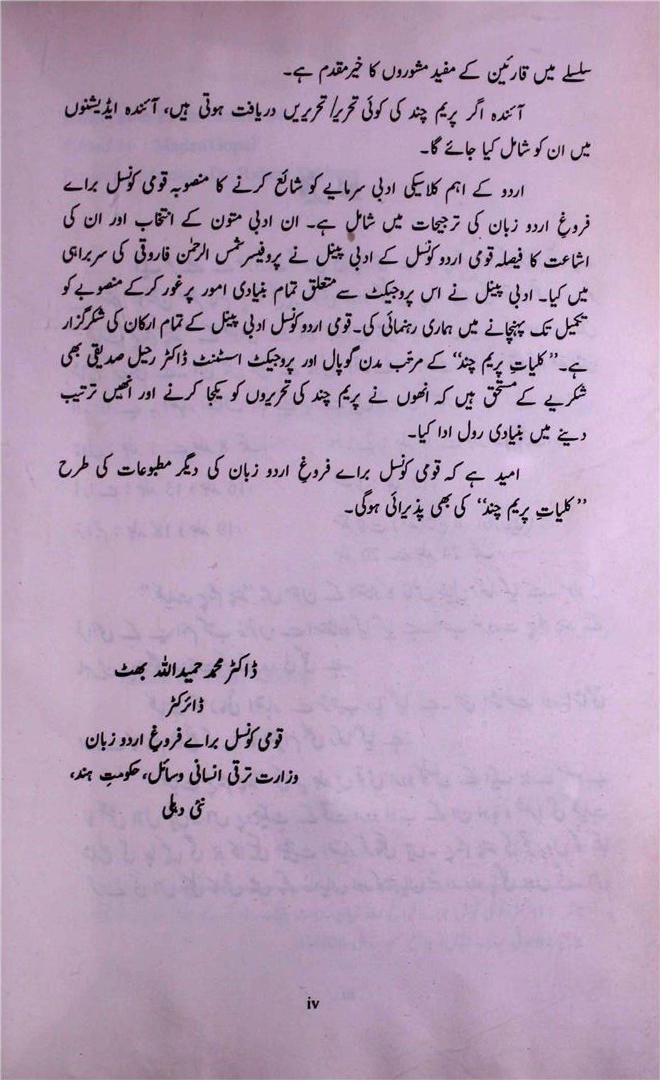 سلسلے میں قارئین کے مفید مشوروں کا خیر مقدم ہے۔
آئندہ اگر پریم چند کی کوئی تحریر/تحریریں دریافت ہوتی ہیں، آئندہ ایڈیشنوں
میں ان کو شامل کیا جائے گا۔
اردو کے اہم کلاسیکی ادبی سرمایے کو شائع کرنے کا منصوبہ قومی کونسل براے
فروغِ اردو زبان کی ترجیحات میں شامل ہے۔ ان ادبی متون کے انتخاب اور ان کی
اشاعت کا فیصلہ قومی اردو کونسل کے ادبی پینل نے پروفیسر شمس الرحمٰن فاروقی کی سربراہی
میں کیا۔ ادبی پینل نے اس پروجیکٹ سے متعلق تمام بنیادی امور پر غور کرکے منصوبے کو
تکمیل تک پہنچانے میں ہماری رہنمائی کی۔ قومی اردو کونسل ادبی پینل کے تمام ارکان کی شکرگزار
ہے۔ ’’کلیاتِ پریم چند‘‘ کے مرتب مدن گوپال اور پروجیکٹ اسسٹنٹ ڈاکٹر رحیل صدیقی بھی
شکریے کے مستحق ہیں کہ انھوں نے پریم چند کی تحریروں کو یکجا کرنے اور انھیں ترتیب
دینے میں بنیادی رول ادا کیا۔
امید ہے کہ قومی کونسل براے فروغِ اردو زبان کی دیگر مطبوعات کی طرح
’’کلیاتِ پریم چند‘‘ کی بھی پذیرائی ہوگی۔
ڈاکٹر محمد حمیداللہ بھٹ
ڈائرکٹر
قومی کونسل براے فروغِ اردو زبان
وزارت ترقی انسانی وسائل، حکومتِ ہند،
نئی دہلی
iv